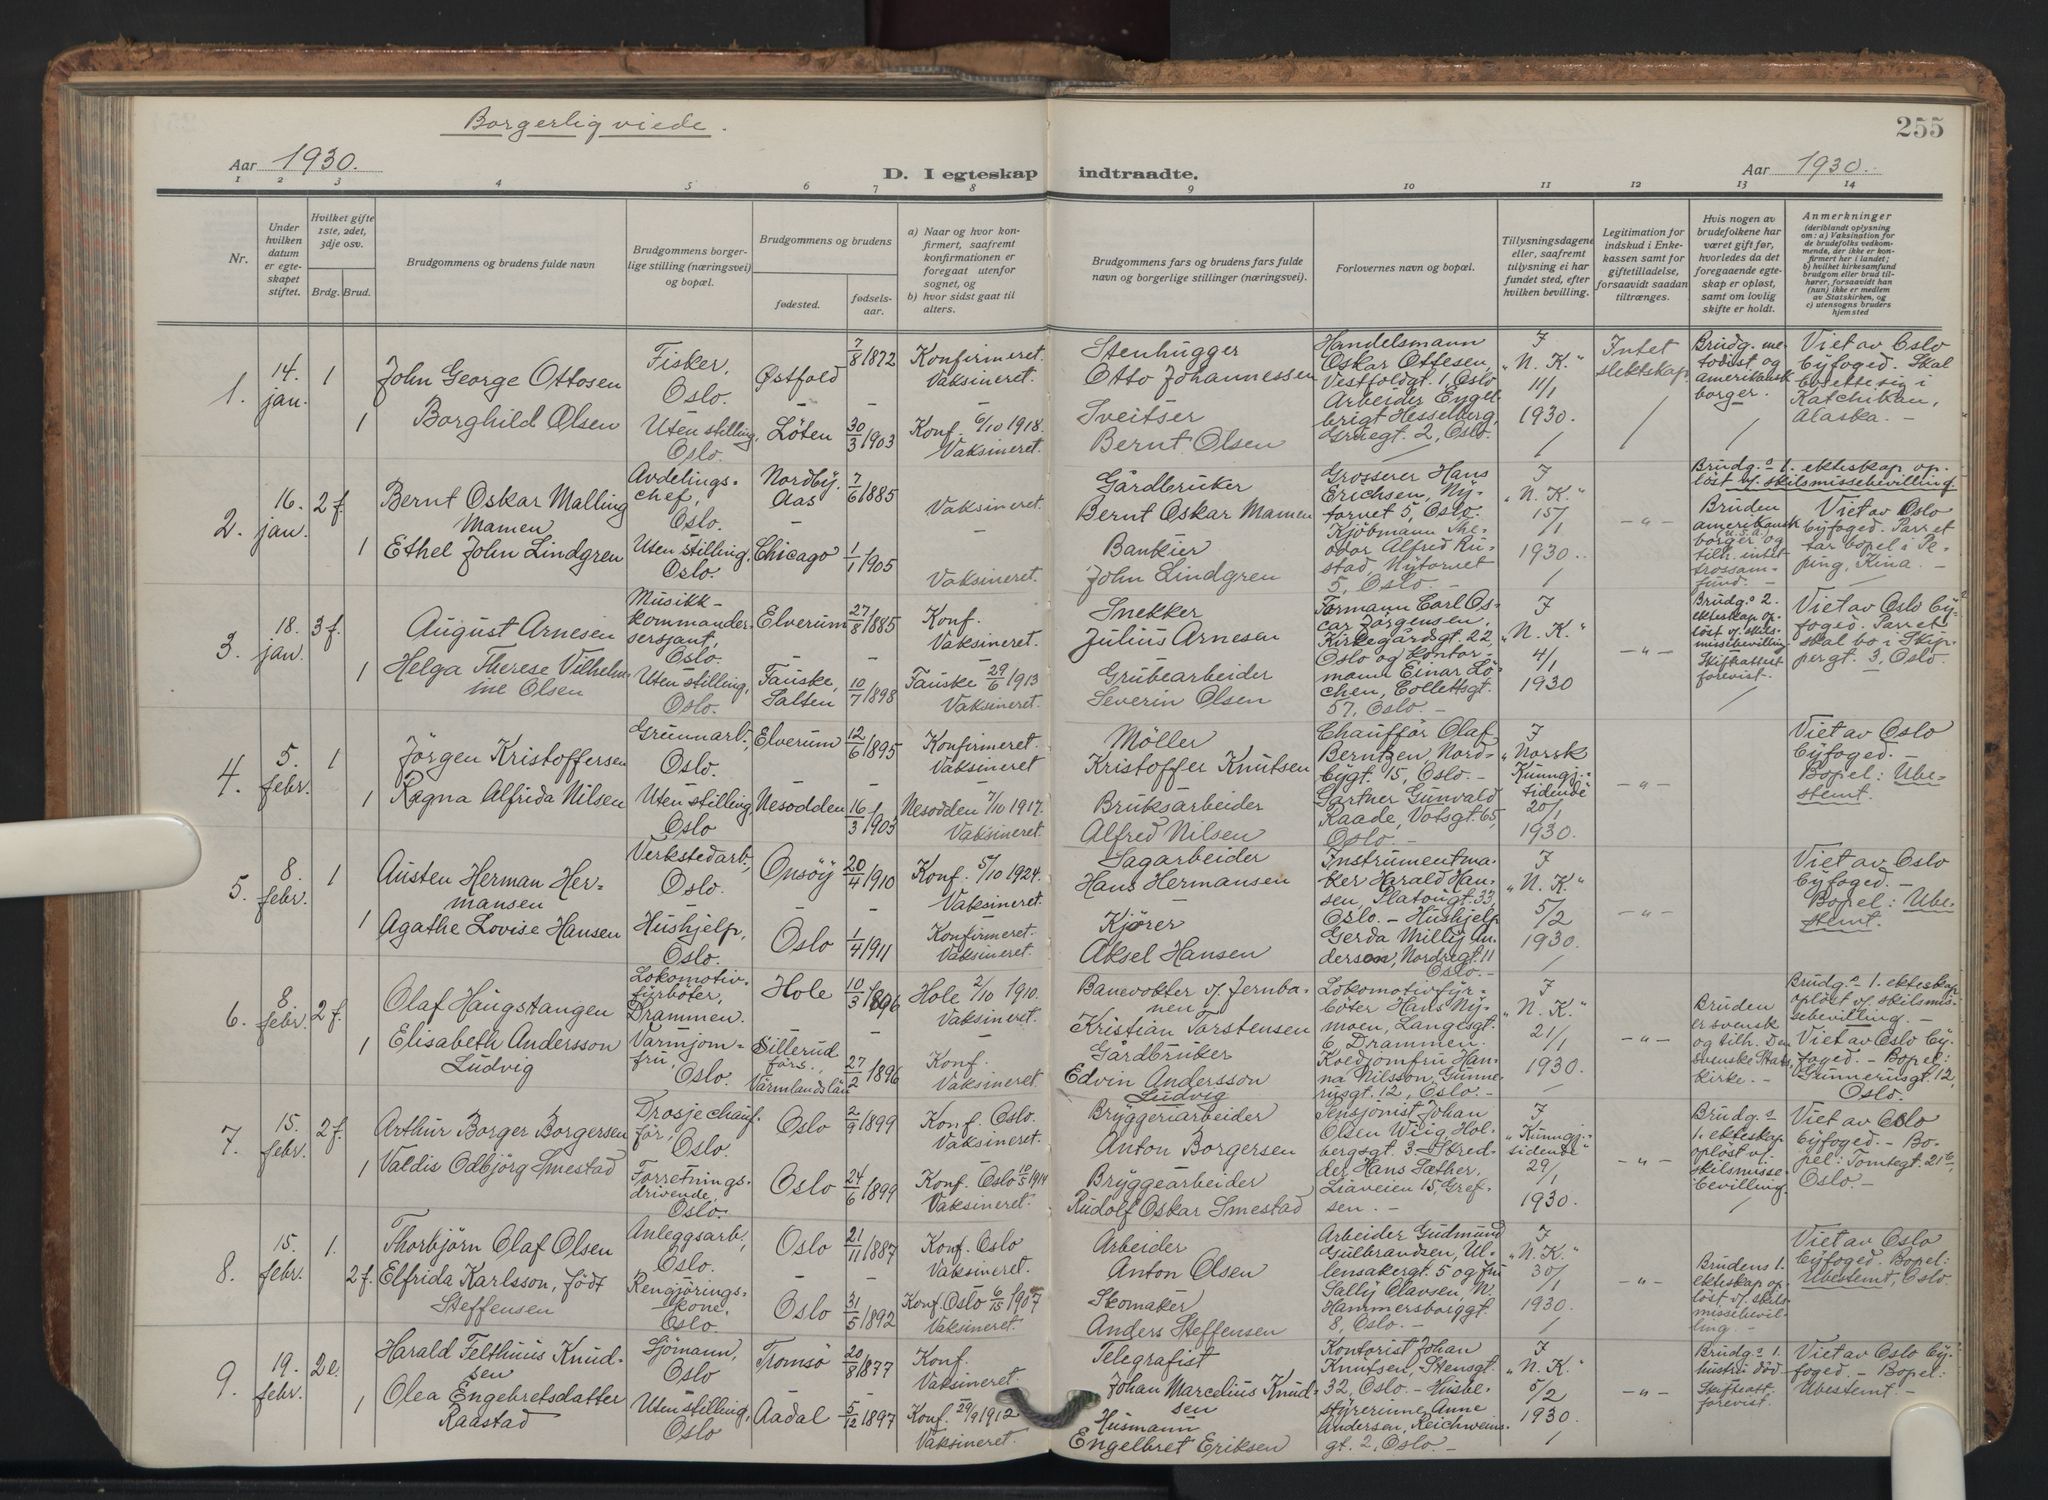 Borgerlig viede.
255
Aar 1930.
D. I egteskap indtraadte.
Aar 1930.
1 2 3 4 5 6 7 8 9 10 11 12 13 14
Nr.
Under hvilken datum er egteskapet stiftet.
Hvilket gifte 1ste, 2det, 3dje osv.
Brdg. Brud.
Brudgommens og brudens fulde navn
Brudgommens borgerlige stilling (næringsvei) og bopæl.
Brudgommens og brudens
fødested.
fødselsaar.
a) Naar og hvor konfirmert, saafremt konfirmationen er foregaat utenfor sognet, og
b) hvor sidst gaat til alters.
Brudgommens fars og brudens fars fulde navn og borgerlige stillinger (næringsvei).
Forlovernes navn og bopæl.
Tillysningsdagene eller, saafremt tillysning ei har fundet sted, efter hvilken bevilling.
Legitimation for indskud i Enkekassen samt for giftetilladelse, forsaavidt saadan tiltrænges.
Hvis nogen av brudefolkene har været gift før, hvorledes da det foregaaende egteskap er opløst, samt om lovlig skifte er holdt.
Anmerkninger
(deriblandt oplysning om: a) Vaksination for de brudefolks vedkommende, der ikke er konfirmert her i landet;
b) hvilket kirkesamfund brudgom eller brud tilhører, forsaavidt han (hun) ikke er medlem av Statskirken, og
c) utensogns bruders hjemsted
1.
14. jan.
1
John George Ottosen
Fisker, Oslo.
Østfold
7/8 1872
Konfirmeret. Vaksineret.
Stenhugger
Otto Johannessen
Handelsmann Oskar Ottesen, Vestfoldgt. 1, Oslo
Arbeider Engelbrigt Hesselberg, Gruegt. 2, Oslo.
I "N. K." 11/1 1930.
Intet slektskap
Brudg. metodist og amerikansk borger.
Viet av Oslo byfoged. Skal bosette sig i Katchikan, Alaska.
1
Borghild Olsen
Uten stilling, Oslo.
Løten
30/3 1903
Konf. 6/10 1918. Vaksineret.
Sveitser
Bernt Olsen
2.
16. jan.
2 f.
Bernt Oskar Malling Mamen
Avdelingschef, Oslo.
Nordby, Aas
7/6 1885
Vaksineret.
Gårdbruker
Bernt Oskar Mamen
Grosserer Hans Erichsen, Nytorvet 5, Oslo.
Kjøbmann Theodor Alfred Rustad, Nytorvet 5, Oslo.
I "N. K." 15/1 1930.
-"-
Brudg.s 1. ekteskap opløst v. skilsmissebevilling.
Bruden amerikansk (U.S.A.) borger og tilh. intet trossamfund.
Viet av Oslo byfoged. Parret tar bopel i Peping, Kina.
1
Ethel John Lindgren
Uten stilling, Oslo.
Chicago
1/1 1905
Vaksineret.
Bankier
John Lindgren
3.
18. jan.
3 f.
August Arnesen
Musikkkommandersersjant, Oslo.
Elverum
27/8 1885
Konf. Vaksineret.
Snekker
Julius Arnesen
Formann Carl Oscar Jørgensen, Kirkegårdsgt. 22, Oslo og kontormann Einar Løchen, Collettsgt. 57, Oslo.
I "N. K." 4/1 1930
-"-
Brudg.s 2. ekteskap opløst v. skilsmissebevilling. Skifteattest forevist.
Viet av Oslo byfoged. Parret skal bo i Skippergt. 3, Oslo.
1
Helga Therese Vilhelmine Olsen
Uten stilling, Oslo.
Fauske, Salten
10/7 1898
Fauske 29/6 1913 Vaksineret.
Grubearbeider
Severin Olsen
4.
5. febr.
1
Jørgen Kristoffersen
Grunnarb., Oslo.
Elverum
12/6 1895
Konfirmeret. Vaksineret
Møller
Kristoffer Knutsen
Chauffør Olaf Berntzen, Nordbygt. 15, Oslo.
Gartner Gunvald Raade, Vøtsgt. 65, Oslo.
I "Norsk Kunngj.-tidende" 20/1 1930.
-"-
Viet av Oslo byfoged. Bopel: Ubestemt.
1
Ragna Alfrida Nilsen
Uten stilling, Oslo
Nesodden
16/3 1903
Nesodden 7/10 1917. Vaksineret.
Bruksarbeider
Alfred Nilsen
5.
8. febr.
1
Austen Herman Hermansen
Verkstedarb., Oslo.
Onsøy
20/4 1910
Konf. 5/10 1924. Vaksineret.
Sagarbeider
Hans Hermansen
Instrumentmaker Harald Hansen, Platougt. 33, Oslo. - Hushjelp Gerda Milly Anderson, Nordregt. 11 Oslo.
I "N. K." 5/2 1930.
-"-
Viet av Oslo byfoged. Bopel: Ubestemt.
1
Agathe Lovise Hansen
Hushjelp, Oslo.
Oslo
1/4 1911
Konfirmeret. Vaksineret.
Kjører
Aksel Hansen
6.
8. febr.
2 f.
Olaf Haugstangen
Lokomotivfyrbøter, Drammen.
Hole
10/3 1896
Hole 2/10 1910. Vaksineret.
Banevokter v. Jernbanen
Kristian Torstensen
Lokomotivfyrbøter Hans Nymoen, Langesgt. 6 Drammen.
Koldjomfru Hanna Nilsson, Gunnerusgt. 12, Oslo.
I "N. K." 21/1 1930.
-"-
Bruden er svensk og tilh. Den svenske Statskirke.
Brudg.s 1. ekteskap opløst v. skilsmissebevilling.
Viet av Oslo byfoged. - Bopel: Gunnerusgt. 12, Oslo.
1
Elisabeth Andersson Ludvig
Varmjomfru, Oslo.
Sillerud førs., Värmlandslän
27/2 1896
Konf. Vaksineret.
Gårdbruker
Edvin Andersson Ludvig
7.
15. febr.
2 f.
Arthur Borger Borgersen
Drosjechauffør, Oslo.
Oslo
2/9 1899
Konf. Oslo. Vaksineret.
Bryggeriarbeider
Anton Borgersen
Pensjonist Johan Olsen Wiig Holbergsgt. 3. - Skredder Hans Sæther, Liaveien 15, Grefsen.
I "Kunngj.sidende" 29/1 1930.
-"-
Brudg.s 1. ekteskap opløst v. skilsmissebevilling.
Viet av Oslo byfoged. - Bopel: Tomtegt. 21 b, Oslo.
1
Valdis Odbjørg Smestad
Forretningsdrivende, Oslo.
Oslo
24/6 1899
Konf. Oslo 10/5 1914 Vaksineret.
Bryggearbeider
Rudolf Oskar Smestad
8.
15. febr.
1.
Thorbjørn Olaf Olsen
Anleggsarb., Oslo.
Oslo
21/11 1887
Konf. Oslo Vaksineret.
Arbeider
Anton Olsen
Arbeider Gudmund Gulbrandsen, Ullensakergt. 5 og fru Sally Olavsen, N. Hammersborggt. 8, Oslo.
I "N. K." 30/1 1930.
-"-
Brudens 1. ekteskap opløst v. skilsmissebevilling.
Viet av Oslo byfoged. Bopel: Ubestemt, Oslo.
2 f.
Elfrida Karlsson, født Steffensen
Rengjøringskone, Oslo.
Oslo
31/5 1892
Konf. Oslo 6/15 1907 Vaksineret
Skomaker
Anders Steffensen
9.
19. febr.
2 e.
Harald Felthuus Knudsen
Sjømann, Oslo
Tromsø
20/8 1877
Konf. Vaksineret.
Telegrafist
Johan Marcelius Knudsen
Kontorist Johan Knutsen, Stensgt. 32, Oslo. - Husbestyrerinne Anne Andersen, Reichweinsgt. 2, Oslo.
I "N. K." 5/2 1930.
-"-
Brudg.s 1. hustru død. Skifteatt. forevist.
Viet av Oslo byfoged. - Bopel: Ubestemt.
1
Olea Engebretsdatter Raastad
Uten stilling, Oslo
Aadal
5/12 1897
Konf. 29/9 1912 Vaksineret.
Husmann
Engelbret Eriksen